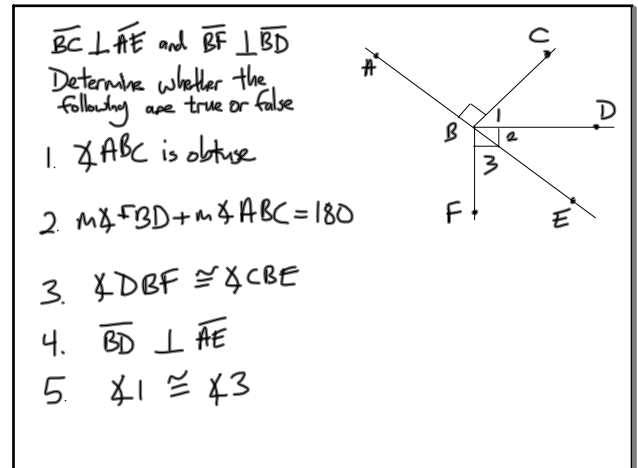 BC ⊥ AE and BF ⊥ BD
Determine whether the
following are true or false
1. ∡ABC is obtuse
2. m∡FBD + m∡ABC = 180
3. ∡DBF ≅ ∡CBE
4. BD ⊥ AE
5. ∡1 ≅ ∡3
A
C
1
B
2
D
3
F
E